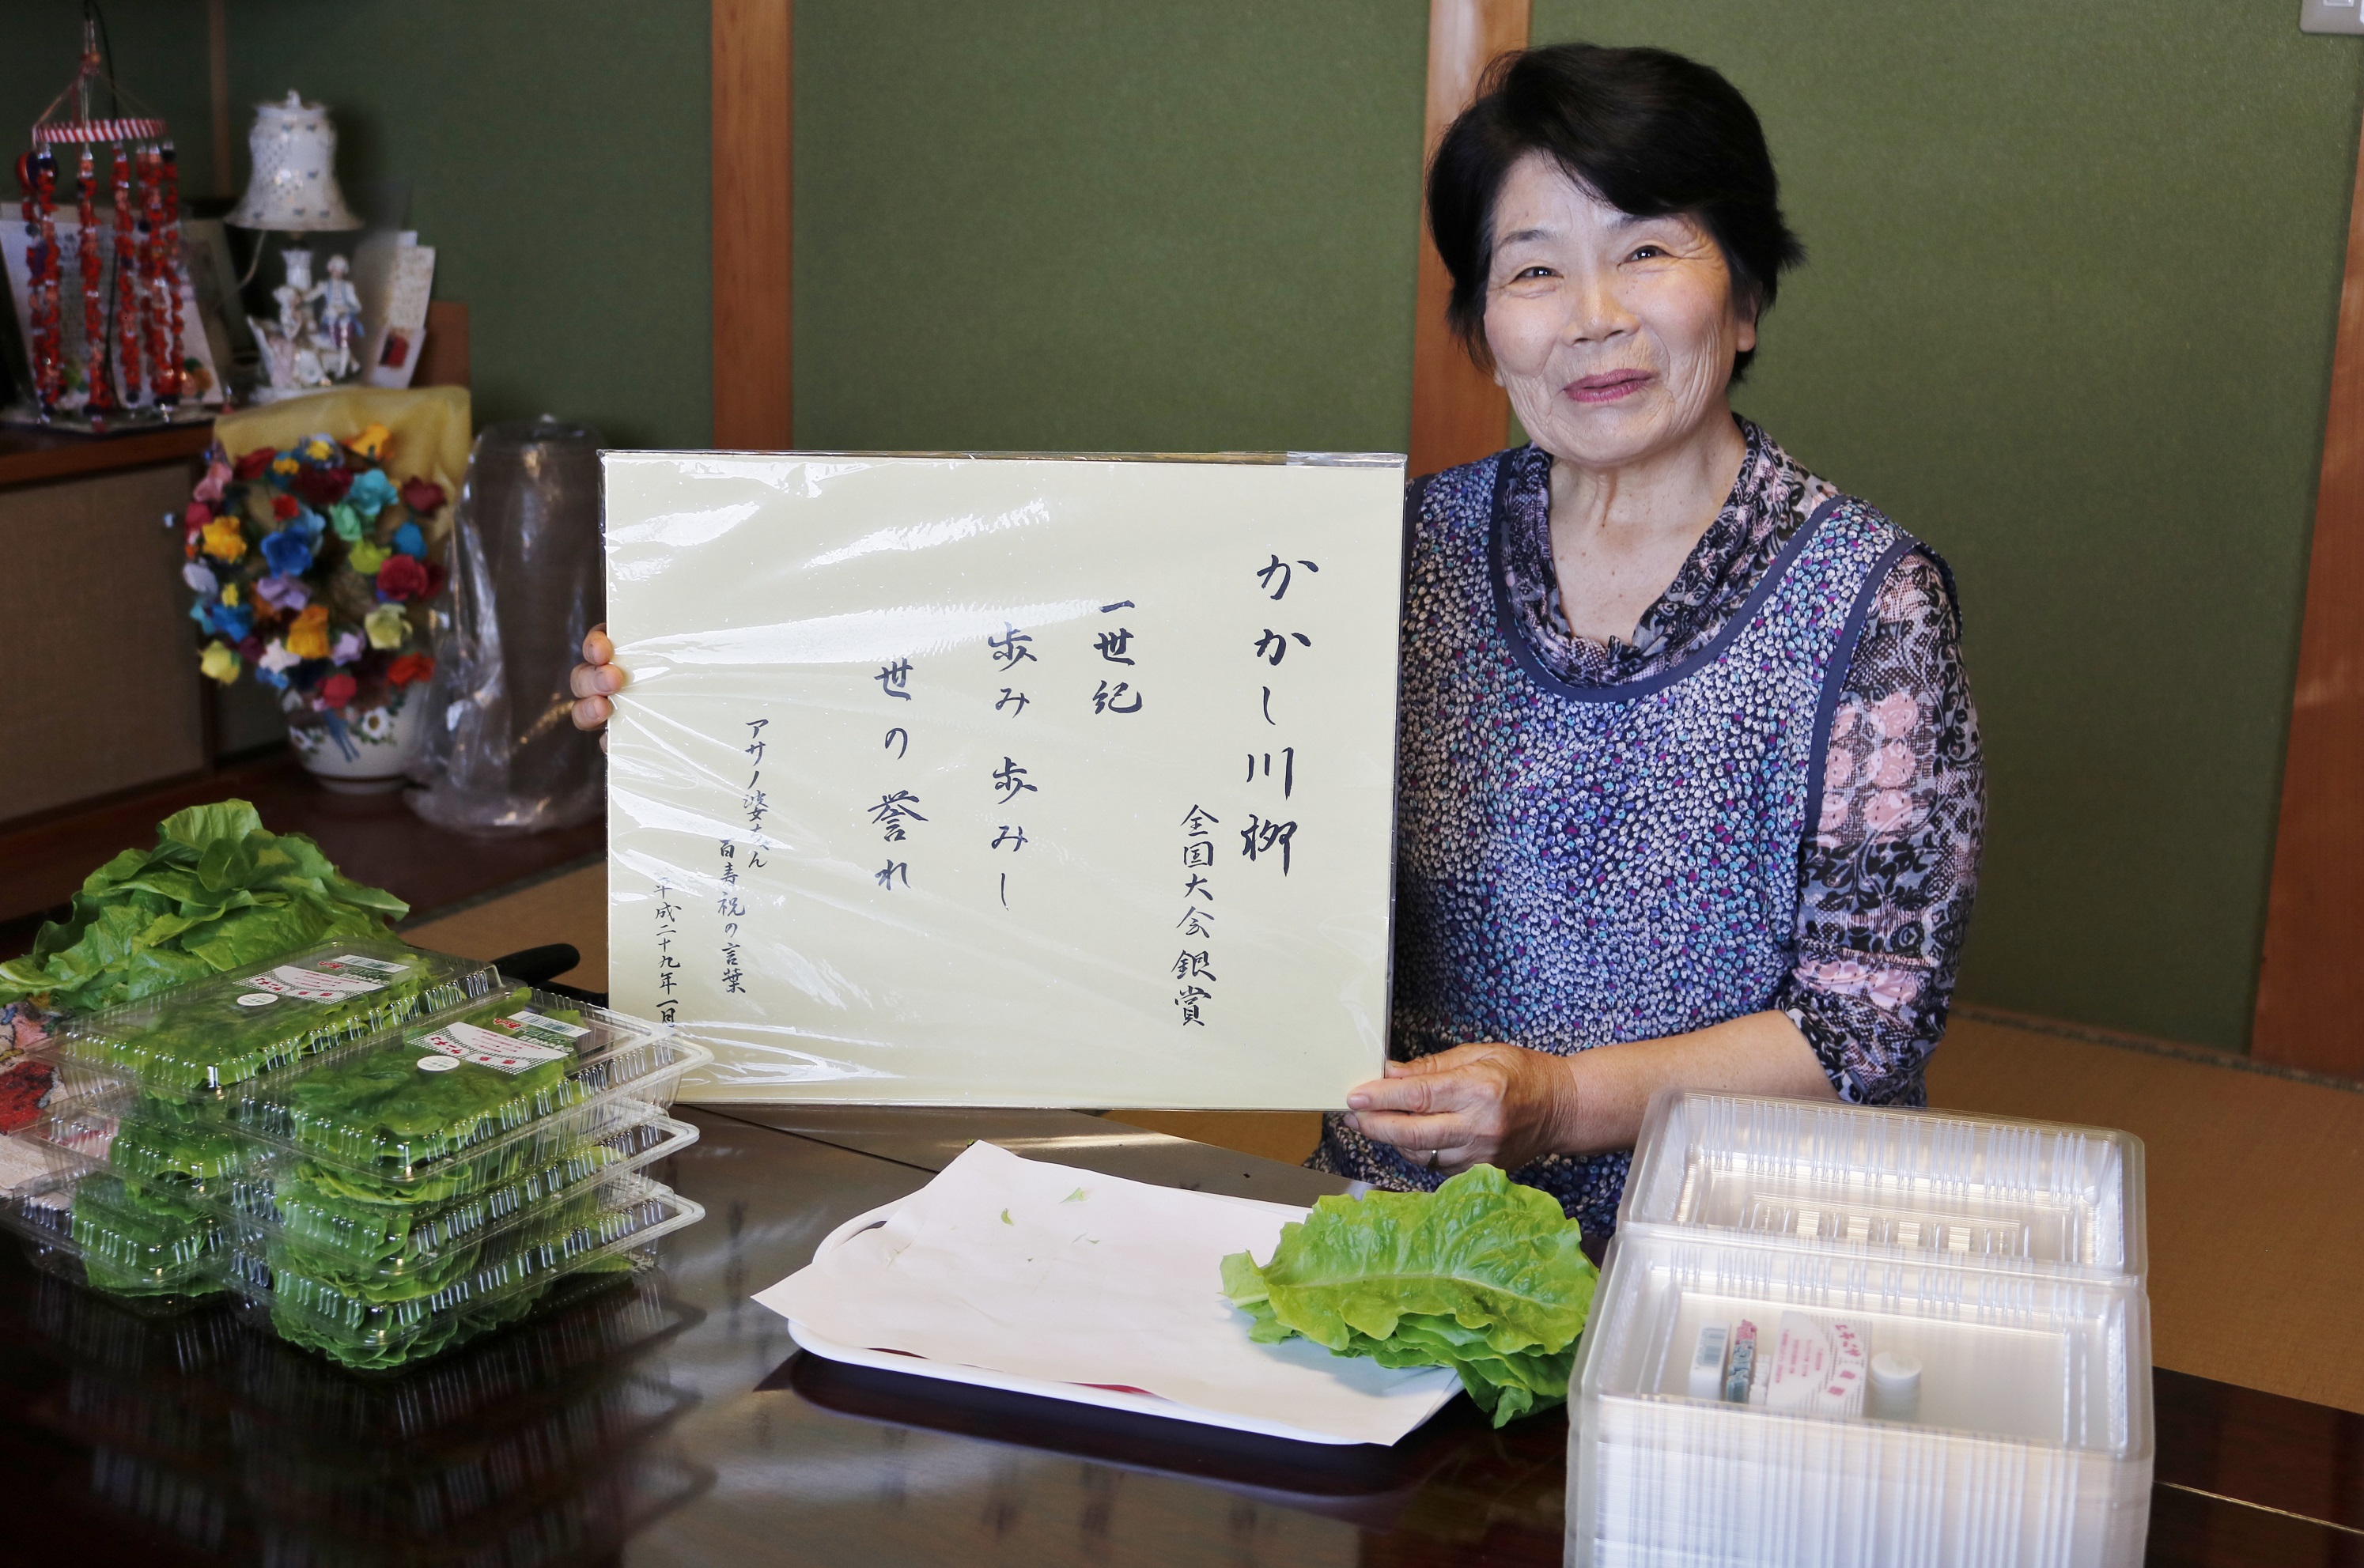 かかし川柳
全国大会銀賞
一世紀
歩み歩みし
世の誉れ
アサノ婆ちゃん
百寿祝の言葉
平成二十九年一月